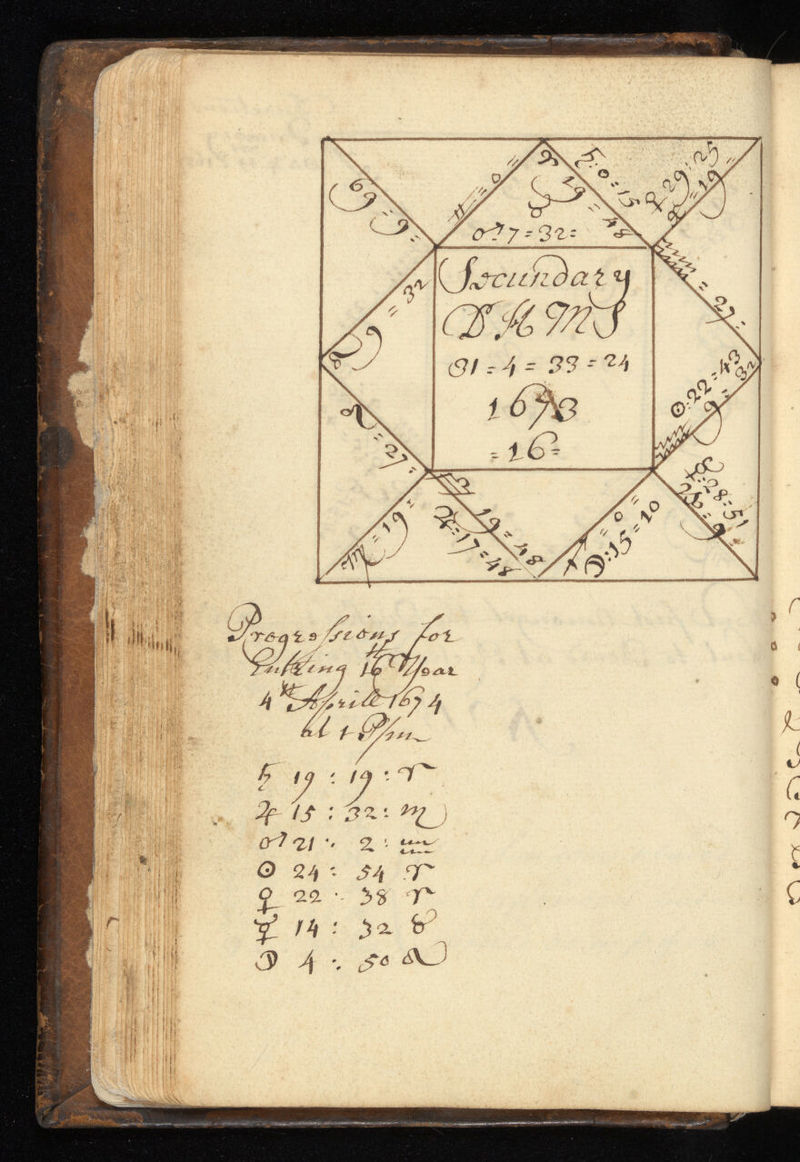 ♋ = 9 =
♊ = 0 =
♈ 19 = 48
♄ : 0 = 15
♂ 7 = 32 =
♀ 29 : 25
= 19 =
♒ = 27 =
♌ 9 = 32
Secundary
D H M S
31 = 4 = 33 = 24
1673
= 16 =
☉ : 22 = 43
♒ 9 = 32
♌ = 27 =
♏ = 19 =
19 = 48
♃ = 17 = 48
♐ = 0 =
☽ : 15 = 10
☿ : 28 = 51
♑ = 9 =
Progressions for
Entring 16th Year
4th Aprill 1674
at 1 P m
♄ 19 : 19 : ♈
♃ 15 : 32 : ♏
♂ 21 : 2 : ♒
☉ 24 : 54 ♈
♀ 22 : 38 ♈
☿ 14 : 32 ♉
☽ 4 : 50 ♌